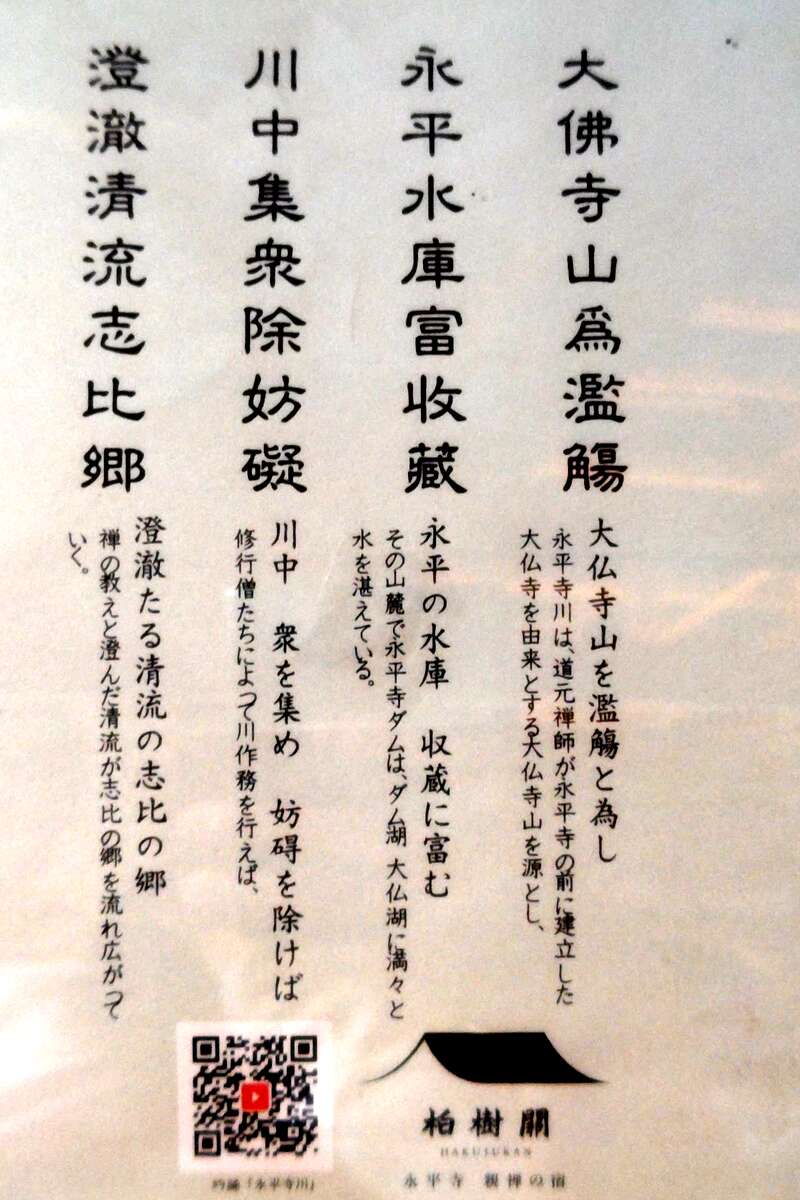 大佛寺山爲濫觴
大仏寺山を濫觴と為し
永平寺川は、道元禅師が永平寺の前に建立した
大仏寺を由来とする大仏寺山を源とし、
永平水庫富收藏
永平の水庫　収蔵に富む
その山麓で永平寺ダムは、ダム湖 大仏湖に満々と
水を湛えている。
川中集衆除妨礙
川中　衆を集め　妨碍を除けば
修行僧たちによって川作務を行えば、
澄澈清流志比郷
澄澈たる清流の志比の郷
禅の教えと澄んだ清流が志比の郷を流れ広がって
いく。
柏樹關
HAKUJUKAN
永平寺 親禅の宿
吟誦「永平寺川」